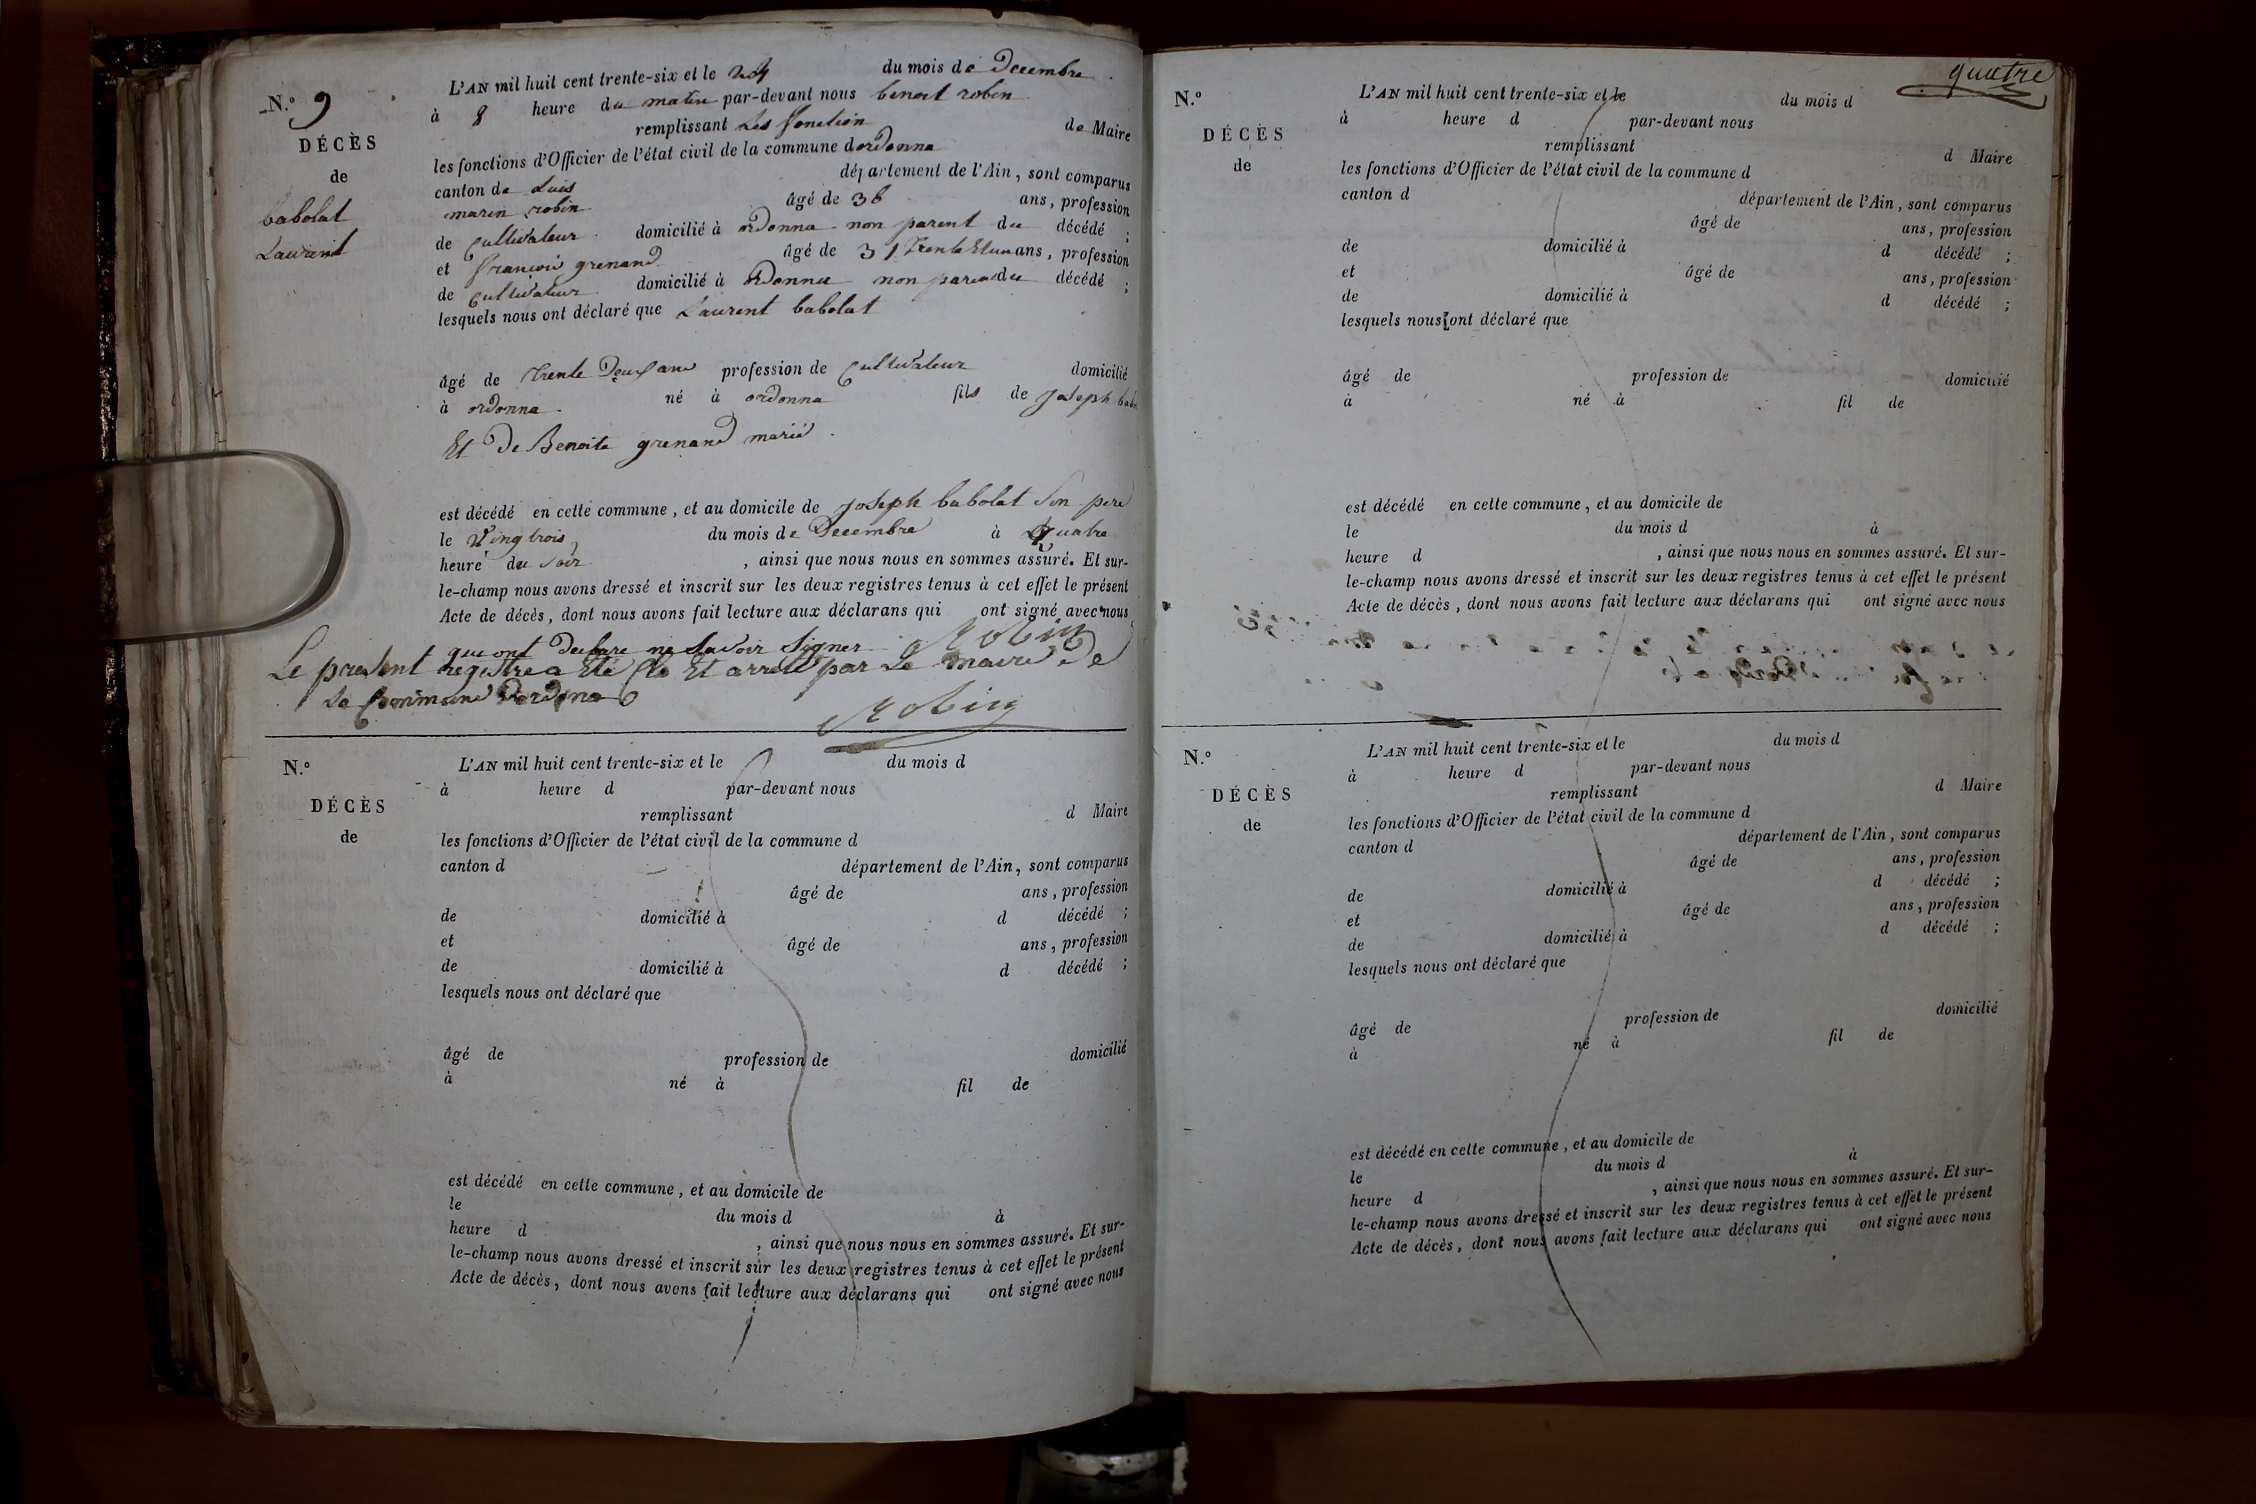 N.° 9
DÉCÈS
de
babolat
Laurent
L'AN mil huit cent trente-six et le 24 du mois de Decembre
à 8 heure du matin par-devant nous benoit robin
remplissant Les fonction de Maire
les fonctions d'Officier de l'état civil de la commune dordonna
canton de Luis département de l'Ain, sont comparus
marin robin âgé de 36 ans, profession
de Cultivateur domicilié à ordonna non parent du décédé ;
et françois grenand âgé de 31 Trente Et un ans, profession
de Cultivateur domicilié à Ordonna non parent du décédé ;
lesquels nous ont déclaré que Laurent babolat
âgé de Trente Deux ans profession de Cultivateur domicilié
à ordonna né à ordonna fils de Joseph babo
Et De Benoite grenand marié
est décédé en cette commune, et au domicile de Joseph babolat Son pere
le Vingtrois du mois de Decembre à quatre
heure du Soir, ainsi que nous nous en sommes assuré. Et sur-
le-champ nous avons dressé et inscrit sur les deux registres tenus à cet effet le présent
Acte de décès, dont nous avons fait lecture aux déclarans qui ont signé avec nous
qui ont Declare ne Savoir Signer Robin
Le present registre a Eté Clo Et arreté par Le maire De
La Commune Dordona
Robin
N.°
DÉCÈS
de
L'AN mil huit cent trente-six et le du mois d
à heure d par-devant nous
remplissant d Maire
les fonctions d'Officier de l'état civil de la commune d
canton d département de l'Ain, sont comparus
âgé de ans, profession
de domicilié à d décédé ;
et âgé de ans, profession
de domicilié à d décédé ;
lesquels nous ont déclaré que
âgé de profession de domicilié
à né à fil de
est décédé en cette commune, et au domicile de
le du mois d à
heure d , ainsi que nous nous en sommes assuré. Et sur-
le-champ nous avons dressé et inscrit sur les deux registres tenus à cet effet le présent
Acte de décès, dont nous avons fait lecture aux déclarans qui ont signé avec nous
quatre
N.°
DÉCÈS
de
L'AN mil huit cent trente-six et le du mois d
à heure d par-devant nous
remplissant d Maire
les fonctions d'Officier de l'état civil de la commune d
canton d département de l'Ain, sont comparus
âgé de ans, profession
de domicilié à d décédé ;
et âgé de ans, profession
de domicilié à d décédé ;
lesquels nous ont déclaré que
âgé de profession de domicilié
à né à fil de
est décédé en cette commune, et au domicile de
le du mois d à
heure d , ainsi que nous nous en sommes assuré. Et sur-
le-champ nous avons dressé et inscrit sur les deux registres tenus à cet effet le présent
Acte de décès, dont nous avons fait lecture aux déclarans qui ont signé avec nous
N.°
DÉCÈS
de
L'AN mil huit cent trente-six et le du mois d
à heure d par-devant nous
remplissant d Maire
les fonctions d'Officier de l'état civil de la commune d
canton d département de l'Ain, sont comparus
âgé de ans, profession
de domicilié à d décédé ;
et âgé de ans, profession
de domicilié à d décédé ;
lesquels nous ont déclaré que
âgé de profession de domicilié
à né à fil de
est décédé en cette commune, et au domicile de
le du mois d à
heure d , ainsi que nous nous en sommes assuré. Et sur-
le-champ nous avons dressé et inscrit sur les deux registres tenus à cet effet le présent
Acte de décès, dont nous avons fait lecture aux déclarans qui ont signé avec nous